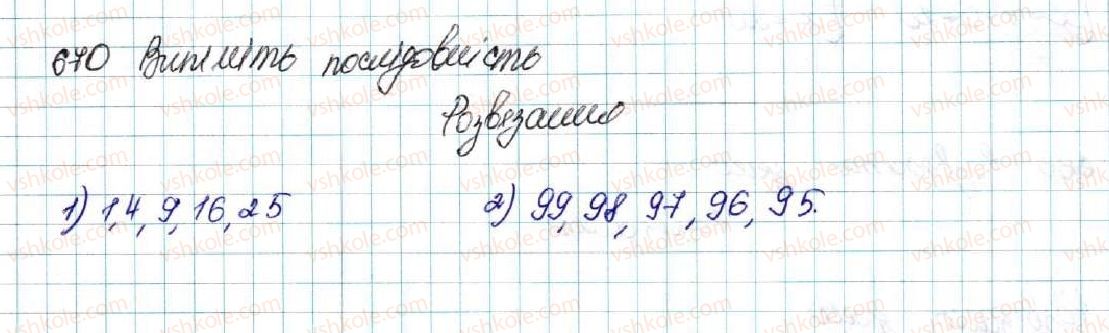 670 Випишіть послідовність
Розв'язання
1) 1, 4, 9, 16, 25
2) 99, 98, 97, 96, 95.
vshkole.com